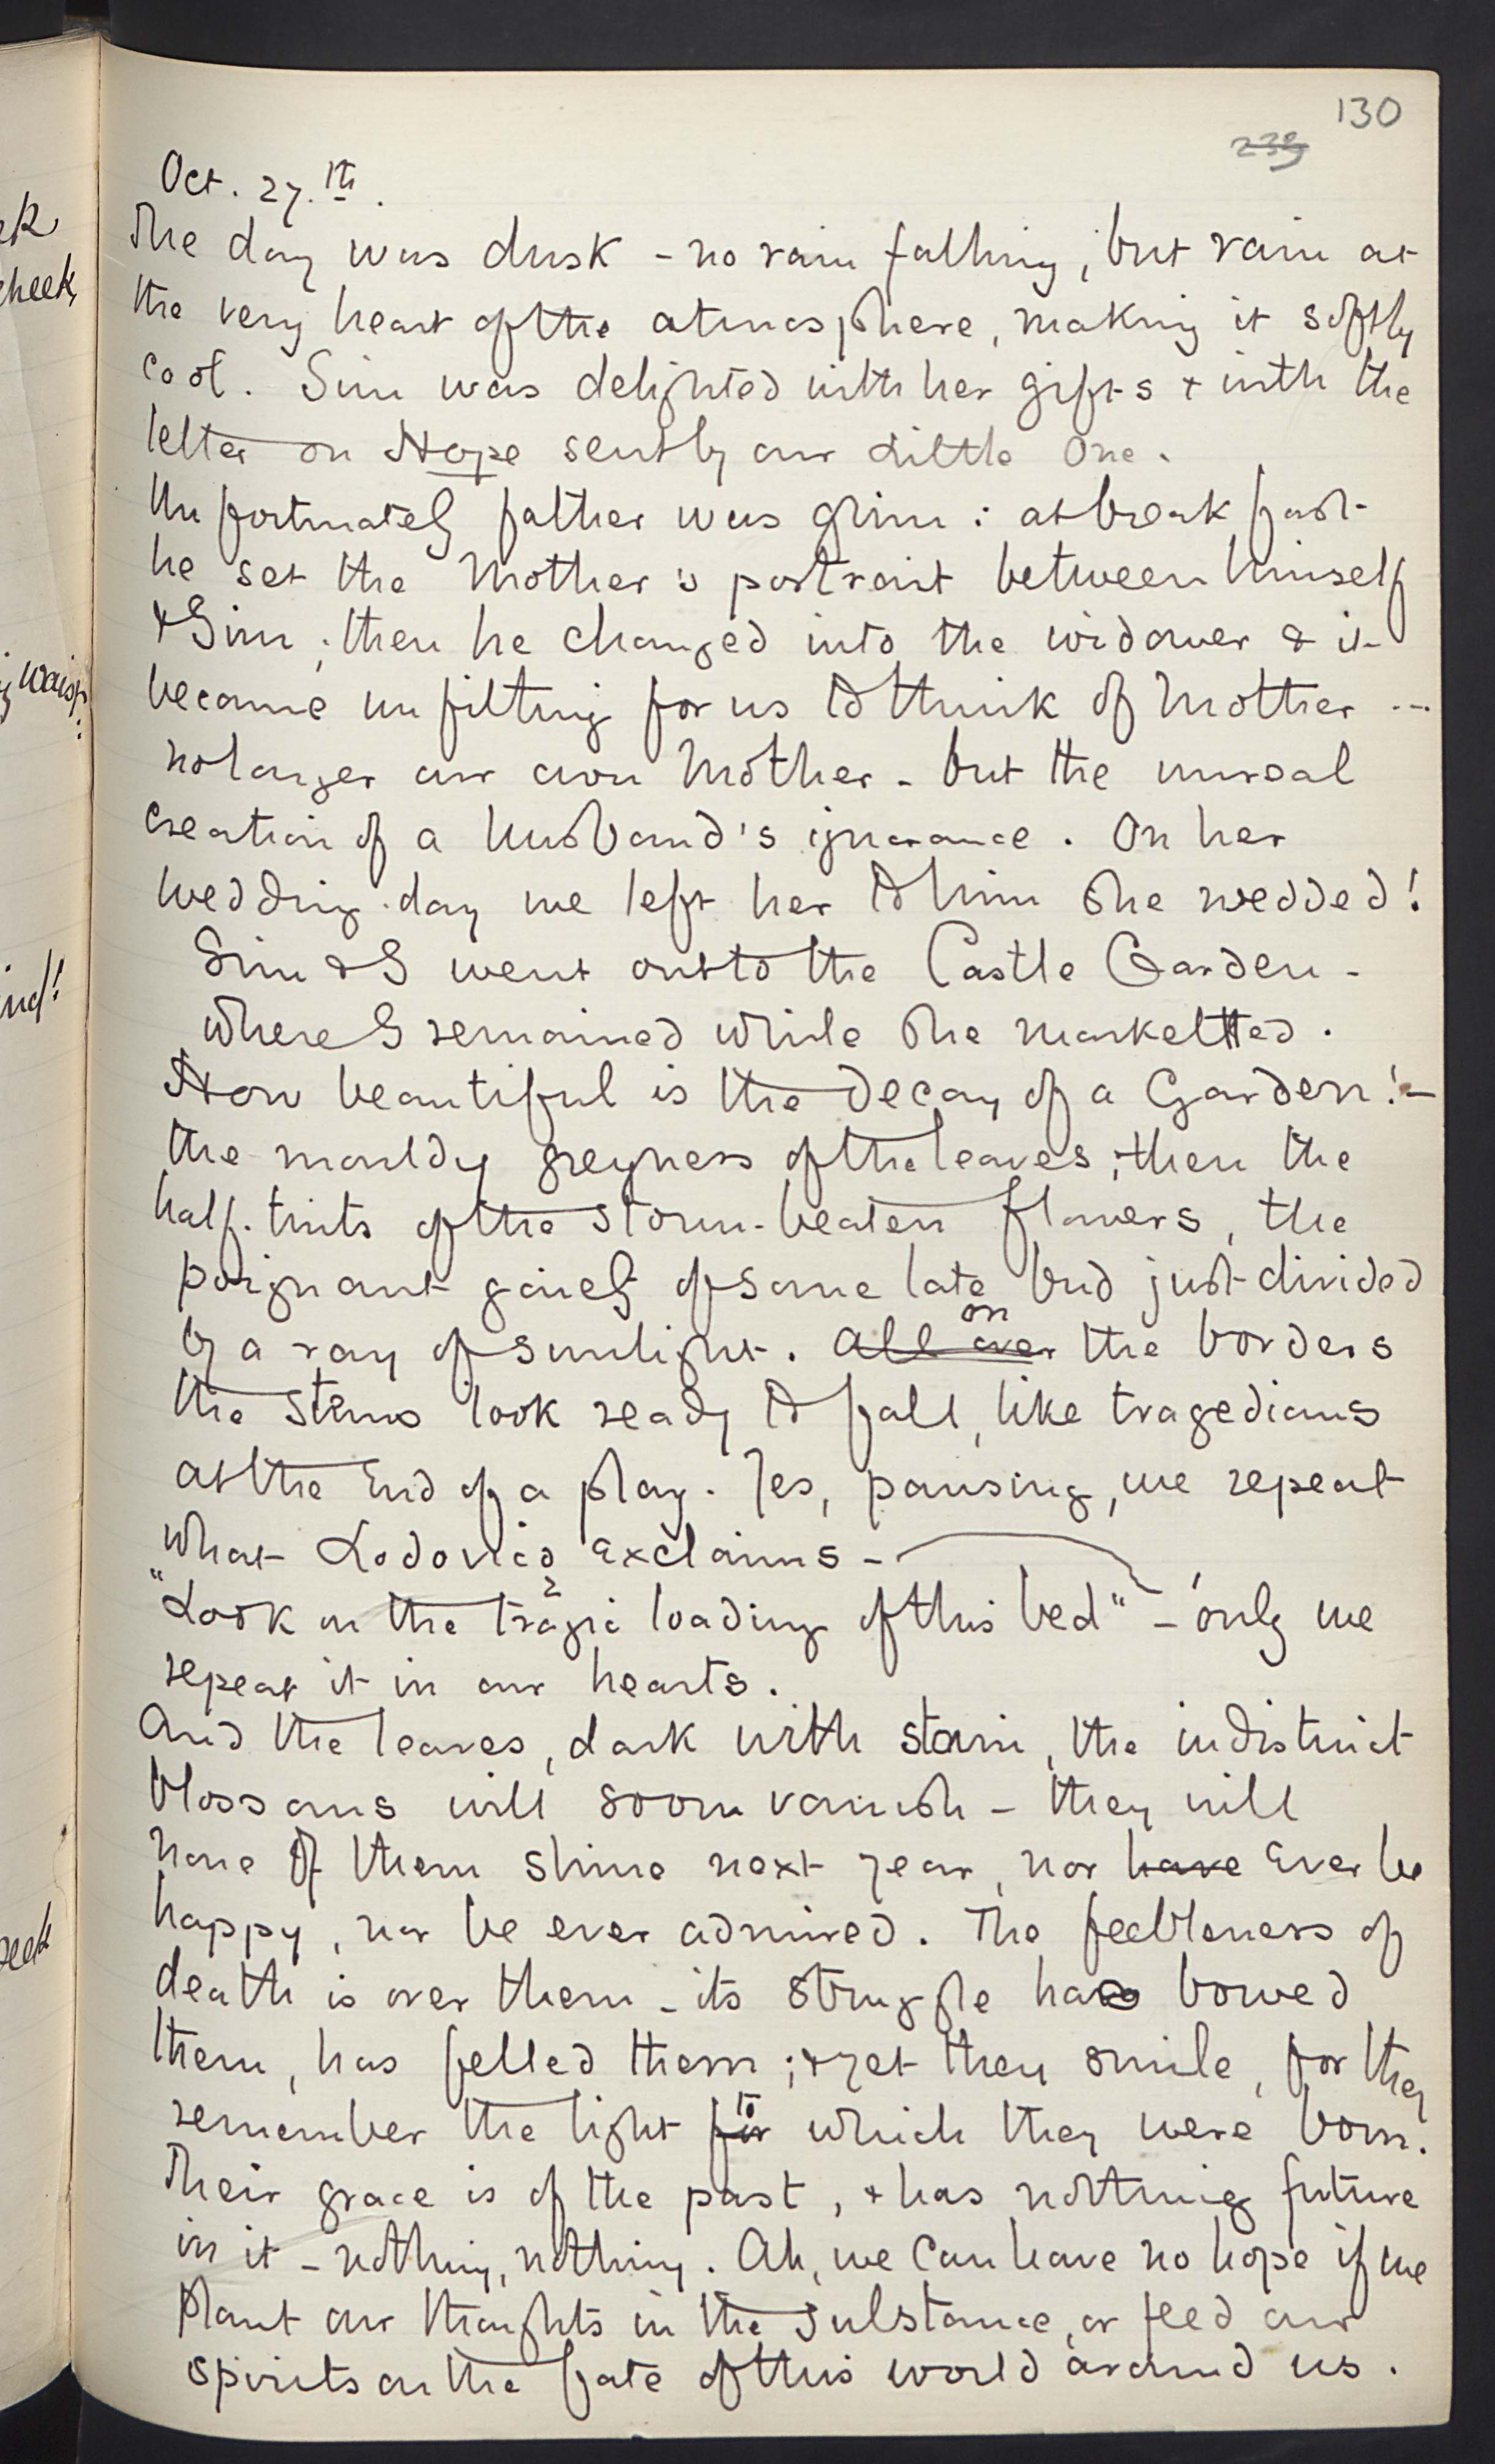 130
239
Oct. 27.th.
The day was dusk - no rain falling, but rain at
the very heart of the atmosphere, making it softly
cool. Sim was delighted with her gifts & with the
letter on Hope sent by our Little One.
Unfortunately father was grim: at breakfast
he set the Mother's portrait between himself
& Sim; then he changed into the widower & it
became unfitting for us to think of Mother ...
no longer our own Mother - but the unreal
creation of a husband's ignorance. On her
wedding-day we left her to him she wedded!
Sim & I went out to the Castle Garden -
where I remained while she marketted.
How beautiful is the decay of a Garden! -
the mouldy greyness of the leaves; then the
half-tints of the storm-beaten flowers, the
poignant gaiety of some late bud just divided
on
by a ray of sunlight. All over the borders
the stems look ready to fall, like tragedians
at the End of a play. Yes, pausing, we repeat
what Lodovico Exclaims -
"Look on the tragic loading of this bed" - only we
repeat it in our hearts.
And the leaves, dark with stain, the indistinct
blossoms will soon vanish - they will
none of them shine next year, nor have Ever be
happy, nor be ever admired. The feebleness of
death is over them - its struggle has bowed
them, has felled them; & yet they smile, for they
to
remember the light for which they were born.
Their grace is of the past, & has nothing future
in it - nothing, nothing. Ah, we can have no hope if we
plant our thoughts in the substance, or feed our
spirits on the fate of this world around us.
cheek